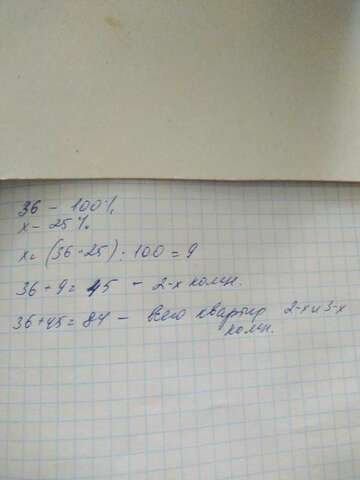 36 - 100%
x - 25%
x = (36 · 25) : 100 = 9
36 + 9 = 45 - 2-х комн.
36 + 45 = 84 - всего квартир 2-х и 3-х
комн.